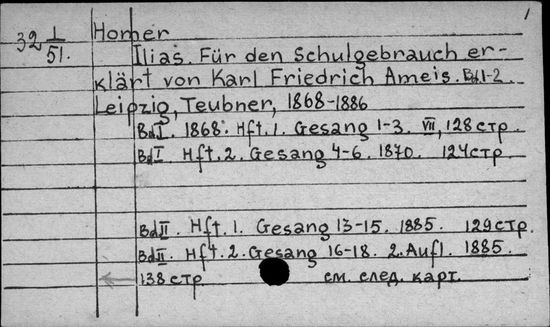 1
32 1/51. Homer
Ilias. Für den Schulgebrauch er-
klärt von Karl Friedrich Ameis. Bd 1-2.
Leipzig, Teubner, 1868-1886
Bd I. 1868. Hft. 1. Gesang 1-3. VII, 128 стр.
Bd I. Hft. 2. Gesang 4-6. 1870. 124 стр.
Bd II. Hft. 1. Gesang 13-15. 1885. 129 стр.
Bd II. Hft. 2. Gesang 16-18. 2. Aufl. 1885.
138 стр см. след. карт.